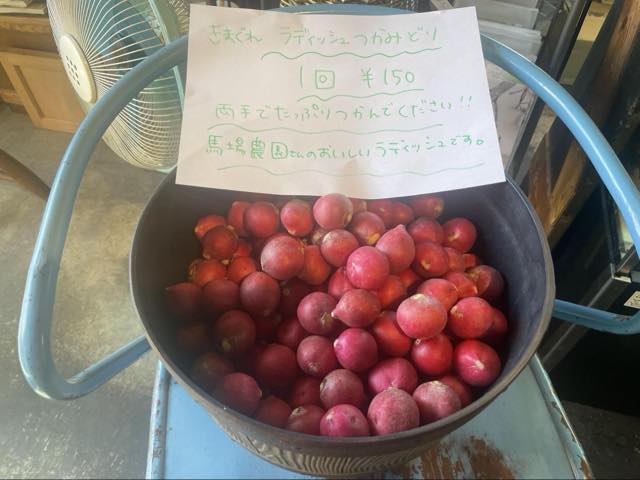 きまぐれ ラディッシュつかみどり
1回 ¥150
両手でたっぷりつかんでください!!
馬場農園さんのおいしいラディッシュです。